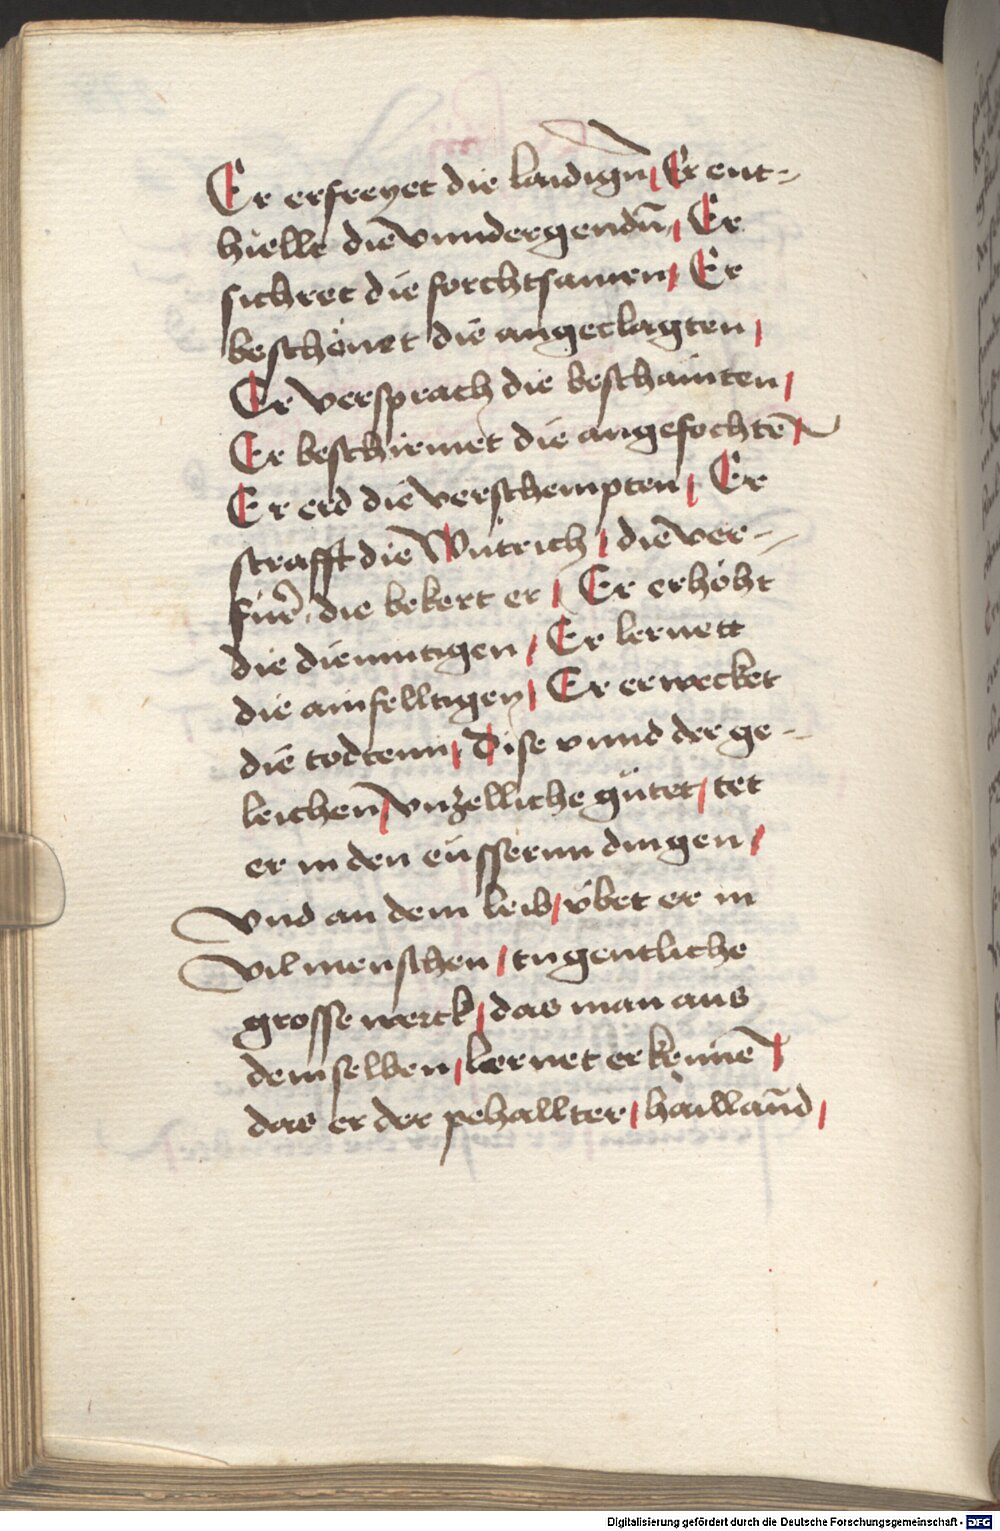 Er erfreyet die laidign̄ / Er ent-
hiellt die vnndergendn̄ / Er
sichret die forchtsamen / Er
beschönet die angeclagten /
Er versprach die beschamten /
Er beschirmet die angefochtē /
Er erd die verschempten / Er
strafft die Wütrich / die ver-
für̄ die bekert er / Er erhöht
die diemutigen / Er lernett
die ainfelltigen / Er erwecket
die todtenn / Dise vnnd der ge-
leichen / vnzelliche gütet / tet
er in den eüssernn dingen /
Vnd an dem leib / vbet er in
Vil menschen / tugentliche
grosse werck / das man aus
demselben / lernet erkennē /
das er der pehallter / hailland /
Digitalisierung gefördert durch die Deutsche Forschungsgemeinschaft - DFG